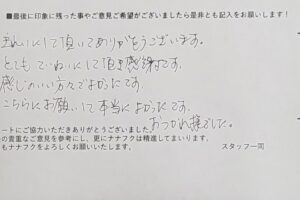 ■最後に印象に残った事やご意見ご希望がございましたら是非とも記入をお願いします!
きれいにして頂いてありがとうございます。
とてもていねいにして頂き感謝です。
感じのいい方々でよかったです。
こちらにお願いして本当によかったです。
おつかれ様でした。
ートにご協力いただきありがとうございました。
の貴重なご意見を参考にし、更にナナフクは精進してまいります。
もナナフクをよろしくお願いいたします。
スタッフ一同